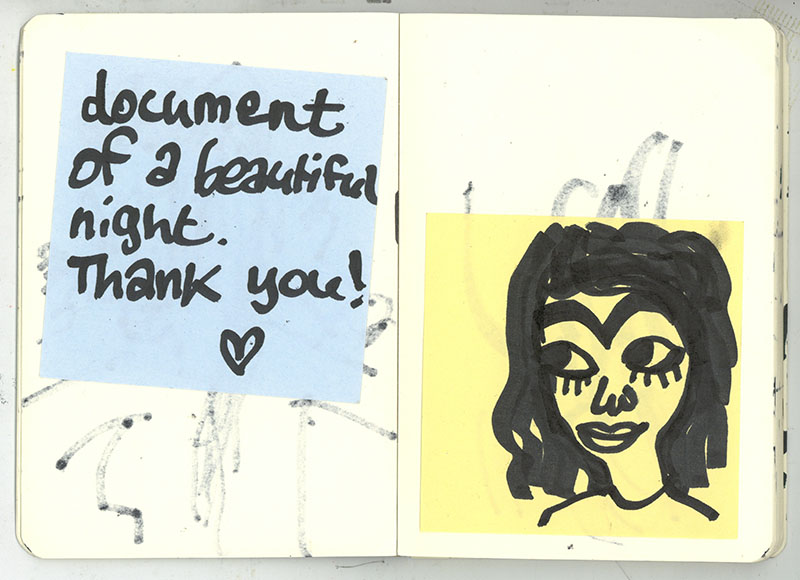 document
of a beautiful
night.
Thank you!